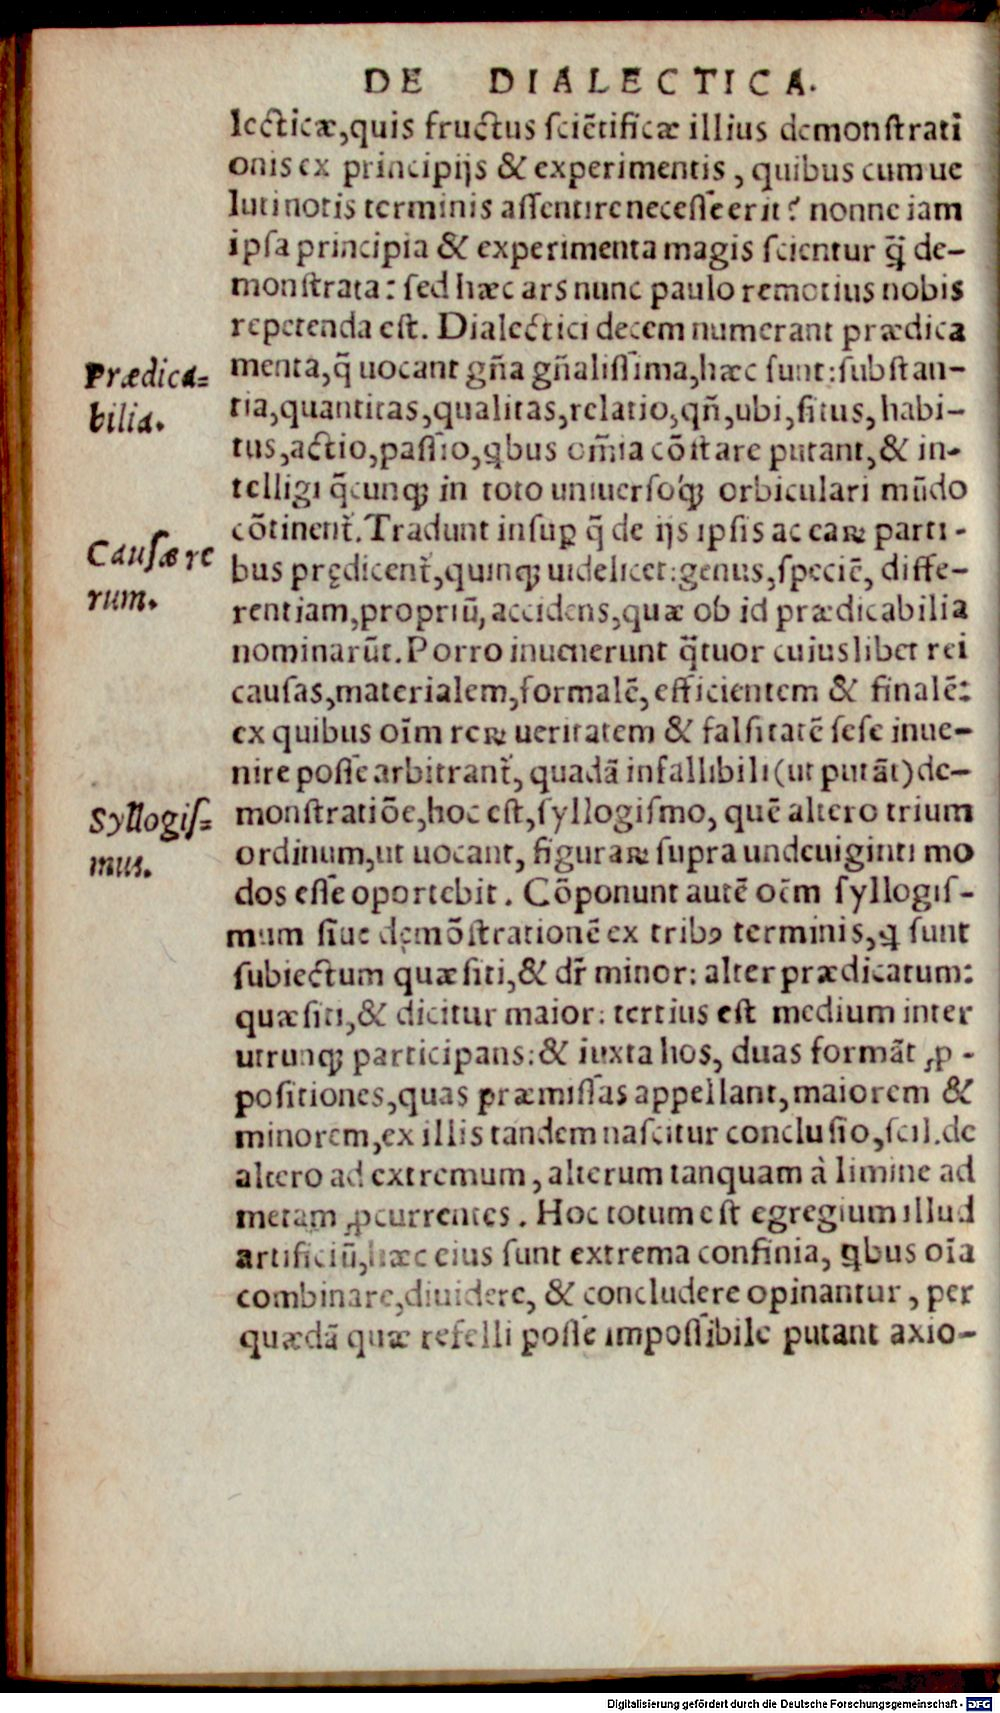 DE DIALECTICA.
lecticæ, quis fructus sciẽtificæ illius demonstrati
onis ex principijs & experimentis, quibus cum ue
luti notis terminis assentire necesse erit? nonne iam
ipsa principia & experimenta magis scientur q̃̃ de-
monstrata: sed hæc ars nunc paulo remotius nobis
repetenda est. Dialectici decem numerant prædica
menta, q̃ uocant gña gñalissima, hæc sunt: substan-
tia, quantitas, qualitas, relatio, qñ, ubi, situs, habi-
tus, actio, passio, ꝗbus om̃ia cõstare putant, & in-
telligi q̃cunqꝫ in toto uniuersoq́ꝫ orbiculari mũdo
cõtinent᷑. Tradunt insuꝑ q̃ de ijs ipsis ac eaꝝ parti-
bus prędicent᷑, quinqꝫ uidelicet: genus, speciẽ, diffe-
rentiam, propriũ, accidens, quæ ob id prædicabilia
nominarũt. Porro inuenerunt q̃tuor cuiuslibet rei
causas, materialem, formalẽ, efficientem & finalẽ:
ex quibus oĩm reꝝ ueritatem & falsitatẽ sese inue-
nire posse arbitrant᷑, quadã infallibili (ut putãt) de-
monstratiõe, hoc est, syllogismo, quẽ altero trium
ordinum, ut uocant, figuraꝝ supra undeuiginti mo
dos esse oportebit. Cõponunt autẽ oẽm syllogis-
mum siue demõstrationẽ ex tribꝰ terminis, ꝗ sunt
subiectum quæsiti, & dr̃ minor: alter prædicatum:
quæsiti, & dicitur maior: tertius est medium inter
utrunqꝫ participans: & iuxta hos, duas formãt ꝓ-
positiones, quas præmissas appellant, maiorem &
minorem, ex illis tandem nascitur conclusio, scil. de
altero ad extremum, alterum tanquam à limine ad
metam ꝓcurrentes. Hoc totum est egregium illud
artificiũ, hæc eius sunt extrema confinia, ꝗbus oĩa
combinare, diuidere, & concludere opinantur, per
quædã quæ refelli posse impossibile putant axio-
Prædica=
bilia.
Causæ re
rum.
Syllogis=
mus.
Digitalisierung gefördert durch die Deutsche Forschungsgemeinschaft - DFG